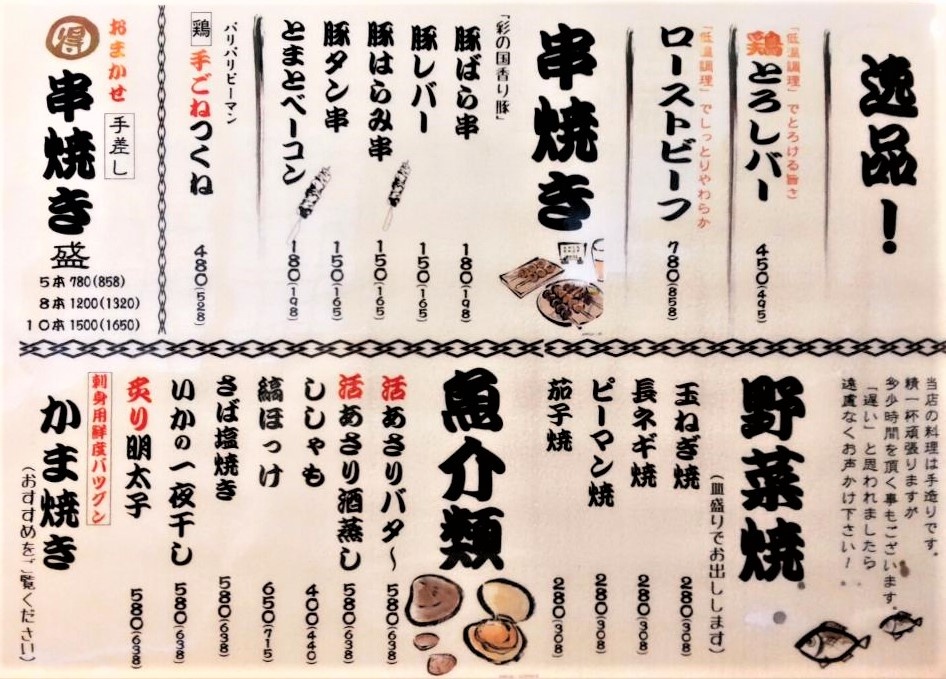 逸品！
「低温調理」でとろける旨さ
鶏とろレバー
450(495)
「低温調理」でしっとりやわらか
ローストビーフ
780(858)
串焼き
「彩の国香り豚」
豚ばら串
180(198)
豚レバー
150(165)
豚はらみ串
150(165)
豚タン串
150(165)
とまとベーコン
180(198)
パリパリピーマン
鶏 手ごねつくね
480(528)
おまかせ
得 串焼き盛
手差し
5本 780(858)
8本 1200(1320)
10本 1500(1650)
当店の料理は手造りです。
精一杯頑張りますが
多少時間を頂く事もございます。
「遅い」と思われましたら
遠慮なくお声かけ下さい！
野菜焼
（皿盛りでお出しします）
玉ねぎ焼
280(308)
長ネギ焼
280(308)
ピーマン焼
280(308)
茄子焼
280(308)
魚介類
活あさりバタ〜
580(638)
活あさり酒蒸し
580(638)
ししゃも
400(440)
縞ほっけ
650(715)
さば塩焼き
580(638)
いかの一夜干し
580(638)
炙り明太子
580(638)
刺身用鮮度バツグン
かま焼き
（おすすめをご覧ください）